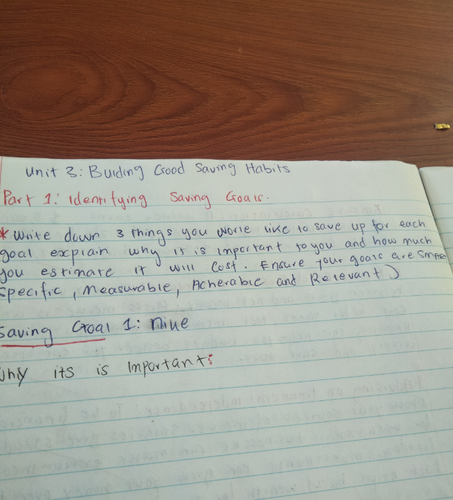 Unit 3: Buiding Good Saving Habits
Part 1: Identifying Saving Goals.
* Write down 3 things you worle like to save up for each
goal explain why it is important to you and how much
you estimate it will cost. Ensure your goals are
Specific, Measurable, Acherable and Relevant)
Saving Goal 1:
why its is Important: